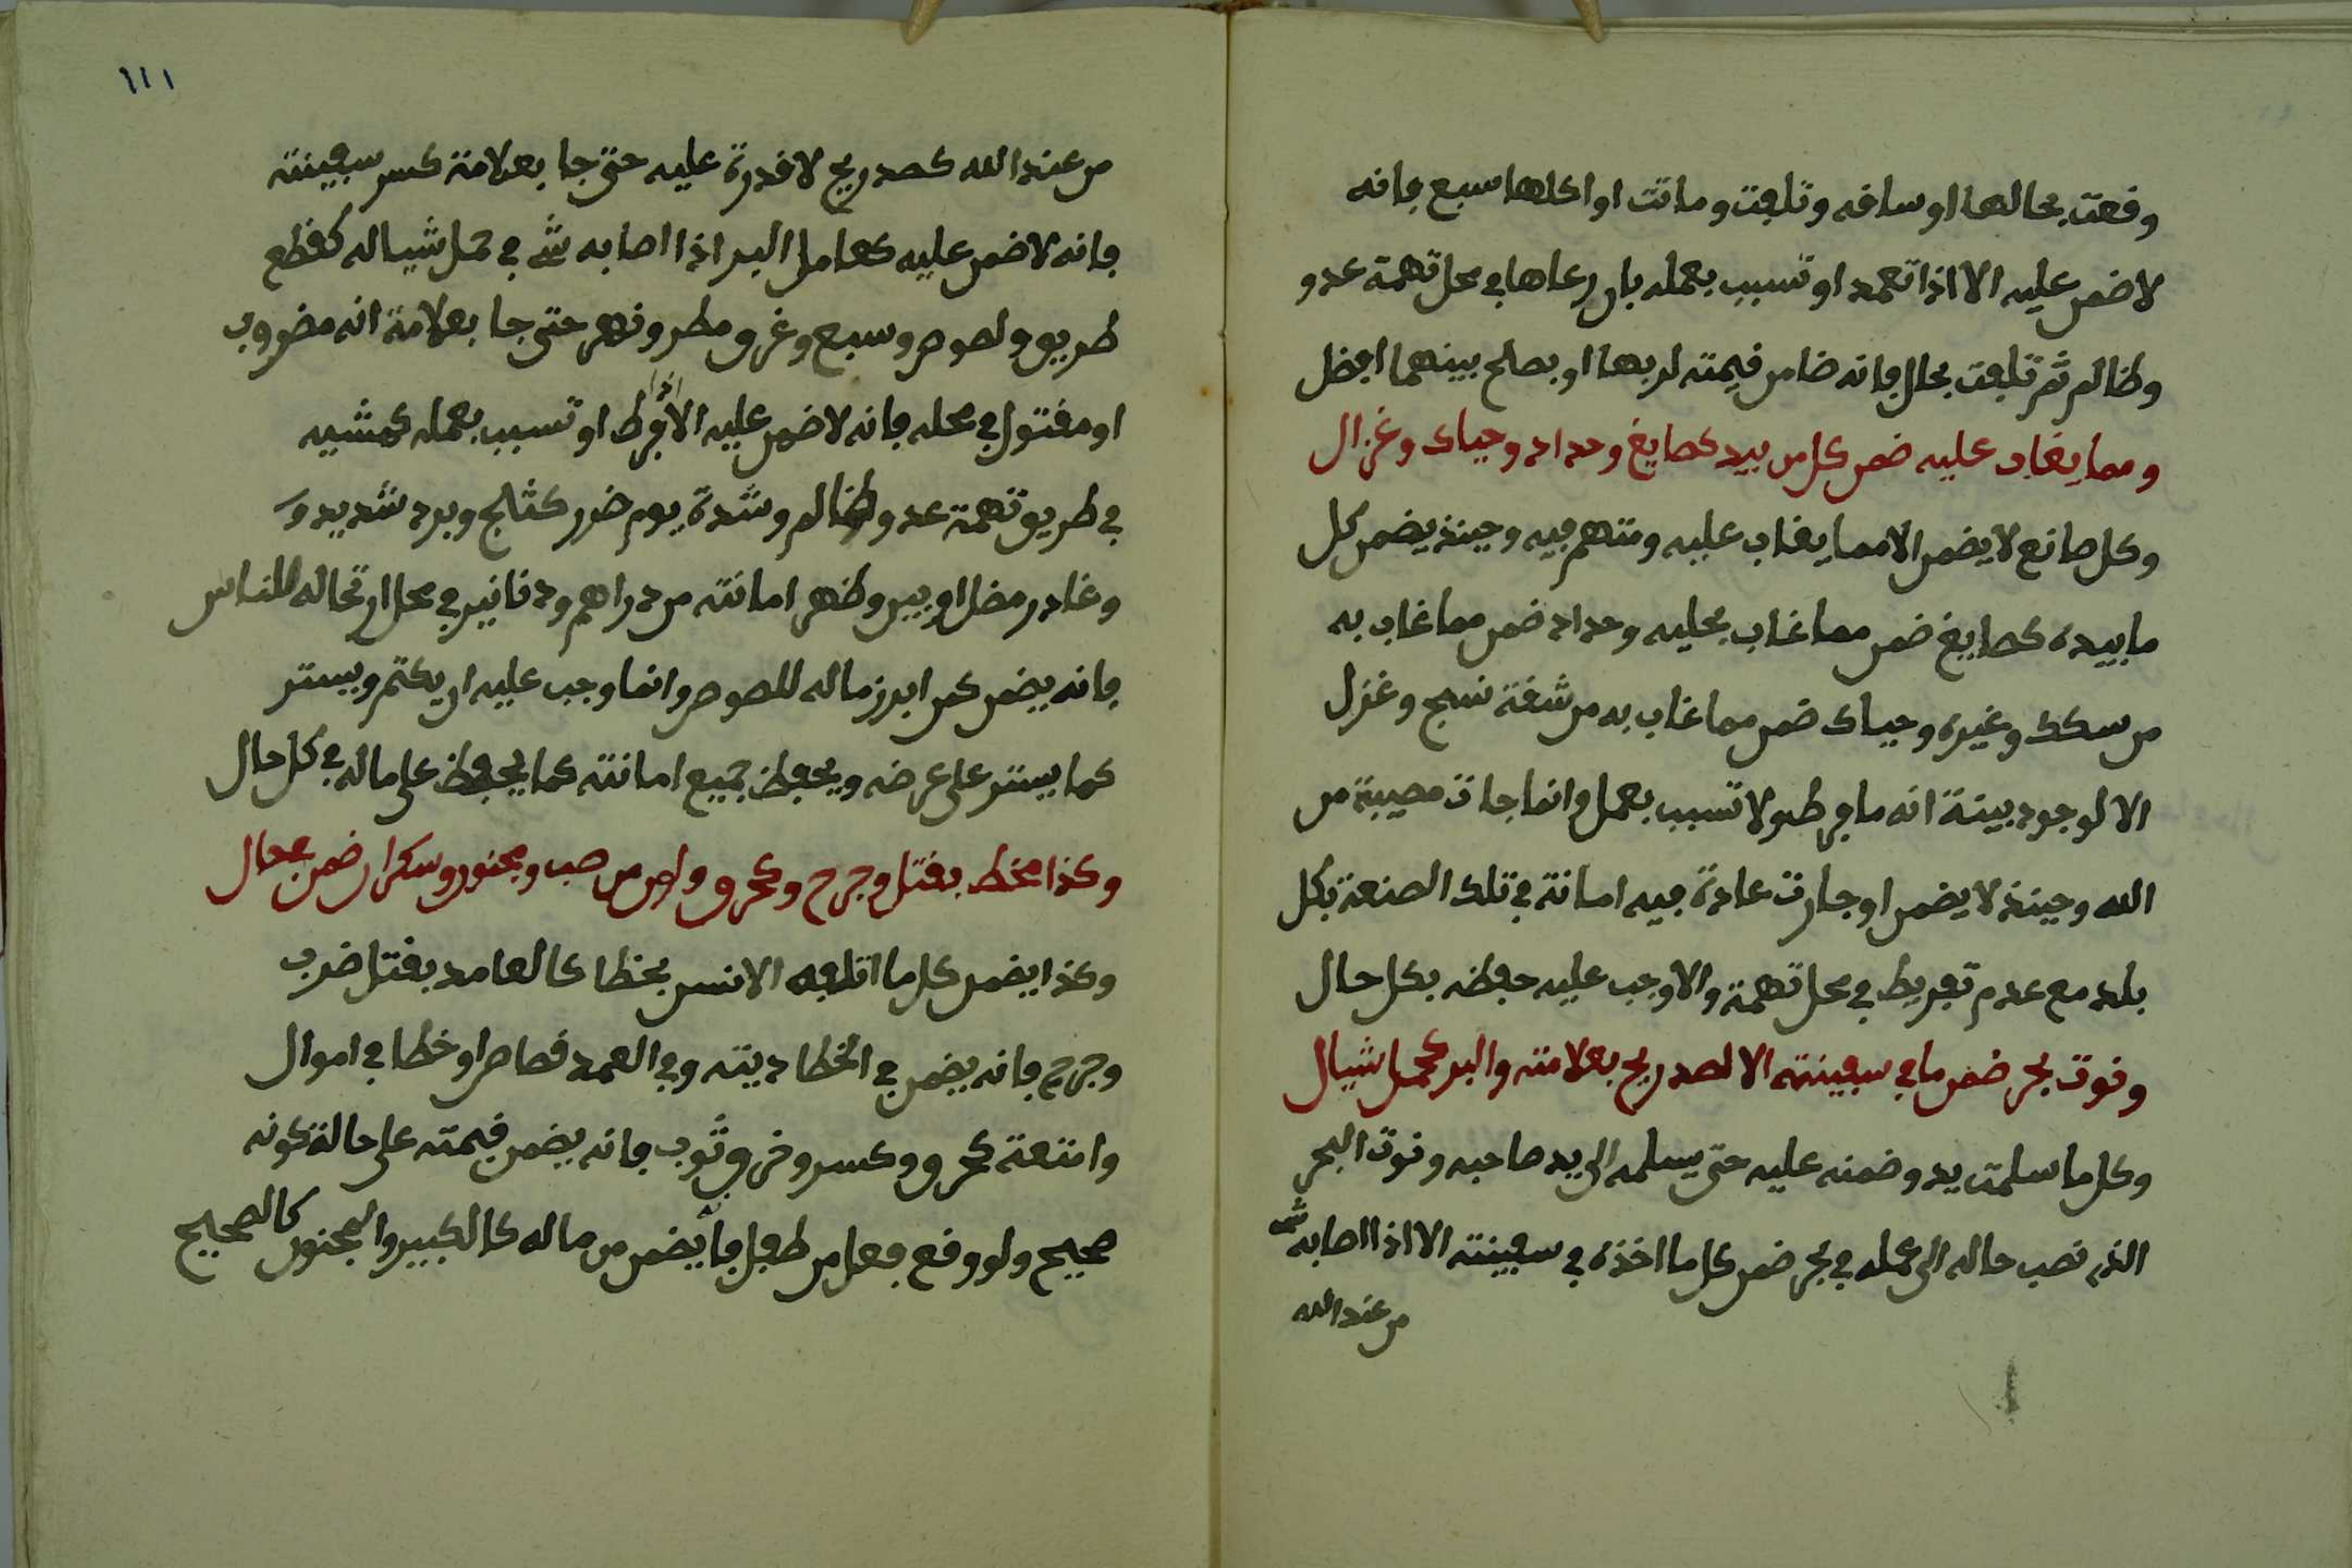 وقعت بحالها او سافه وتلفت وماتت او اكلها سبع فانه
لا ضمن عليه الا اذا تعمد او تسبب بعمله بان رعاها في محل تهمة عدو
وظالم ثم تلفت بحال فانه ضامن قيمته لربها او بصلح بينهما افضل
ومما يغاب عليه ضمن كل من بيد كصايغ وحداد وحياك وغزال
وكل صانع لا يضمن الا مما يغاب عليه ومتهم فيه وحينئذ يضمن كل
ما بيده كصايغ ضمن مما غاب بحليه وحداد ضمن مما غاب به
من سكك وغيره وحياك ضمن مما غاب به من شقة نسج وغزل
الا لوجود بينة انه ما فرط ولا تسبب بعمل وانما جات مصيبة من
الله وحينئذ لا يضمن او جارت عادة فيه امانة في تلك الصنعة بكل
بلد مع عدم تفريط في محل تهمة والا وجب عليه حفظه بكل حال
ونوت بحر ضمن ما في سفينته الا لصد ريح بعلامته والبر كحمل شيال
وكل ما سلمت يد وضمنه عليه حتى يسلمه الى يد صاحبه ونوت البحر
الذي نصب حاله الى عمله في بحر ضمن كل ما اخذه في سفينته الا اذا اصابه شي
من عند الله
١١١
من عند الله كصد ريح لا قدرة عليه حتى جا بعلامة كسر سفينته
فانه لا ضمن عليه كعامل البر اذا اصابه شي في حمل شياله كقطع
طريق ولصوص وسبع وغرق ومطر ونهر حتى جا بعلامة انه مضروب
او مقتول في محله فانه لا ضمن عليه الا اذا فرط او تسبب بعمله كمشيه
في طريق تهمة عدو وظالم وشدة يوم ضرر كثلج وبرد شديد و
وغادر مضل او بين وظهر امانته من دراهم ودنانير في محل ارتحاله للناس
فانه يضمن كمن ابرز ماله للصوص وانما وجب عليه ان يكتم ويستر
كما يستر على عرضه ويحفظ جميع امانته كما يحفظ على ماله في كل حال
وكذا مخط بقتل وجرح وكحرق ولو من صب ومجنون وسكران ضمن بحال
وكذا يضمن كل ما اتلفه الانس بخطا كالعامد بقتل ضرب
وجرح فانه يضمن في الخطا ديته وفي العمد قصاص او خطا في اموال
وامتعة كحرق وكسر وخرق ثوب فانه يضمن قيمته على حالة كونه
صحيح ولو وقع فعل من طفل فانه يضمن من ماله كالكبير والمجنون كالصحيح